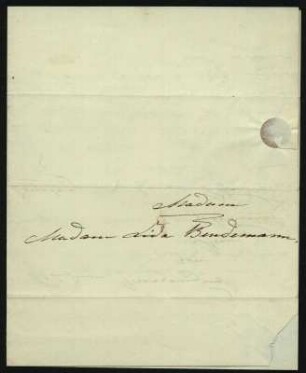 Madam
Madam Lida Bendemann